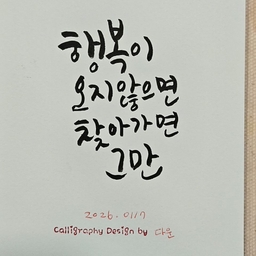 행복이
오지않으면
찾아가면
그만
2026. 0117
Calligraphy Design by 다운